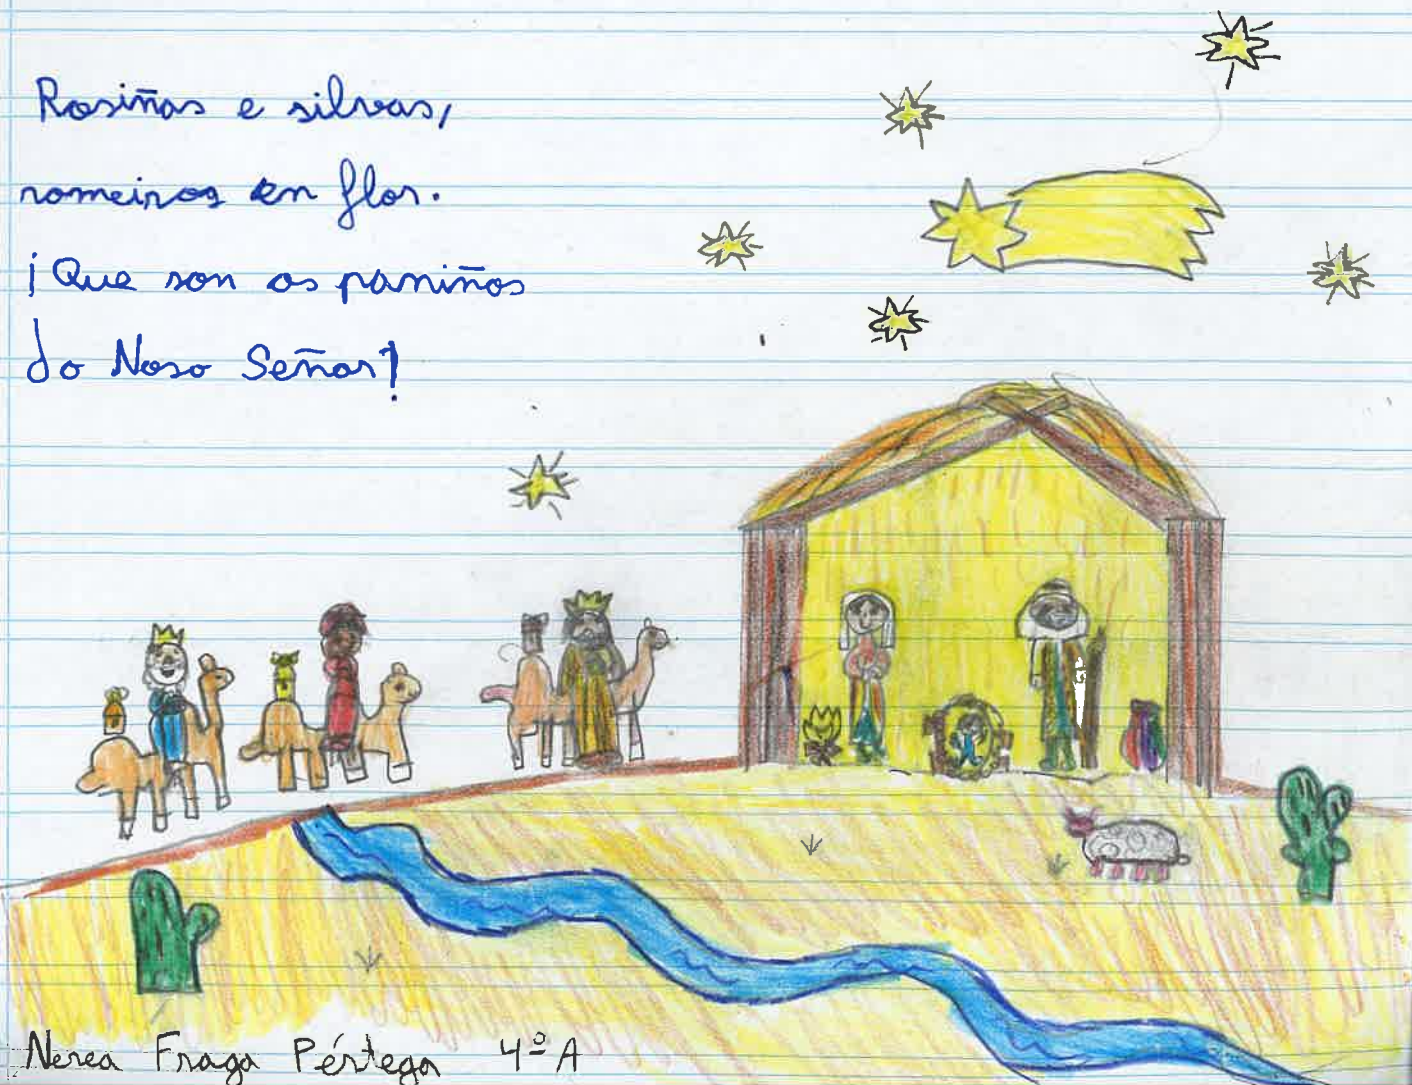 Rosiñas e silvas,
romeiros en flor.
¡Que son os paniños
do Noso Señor!
Nerea Fraga Pértega 4º A